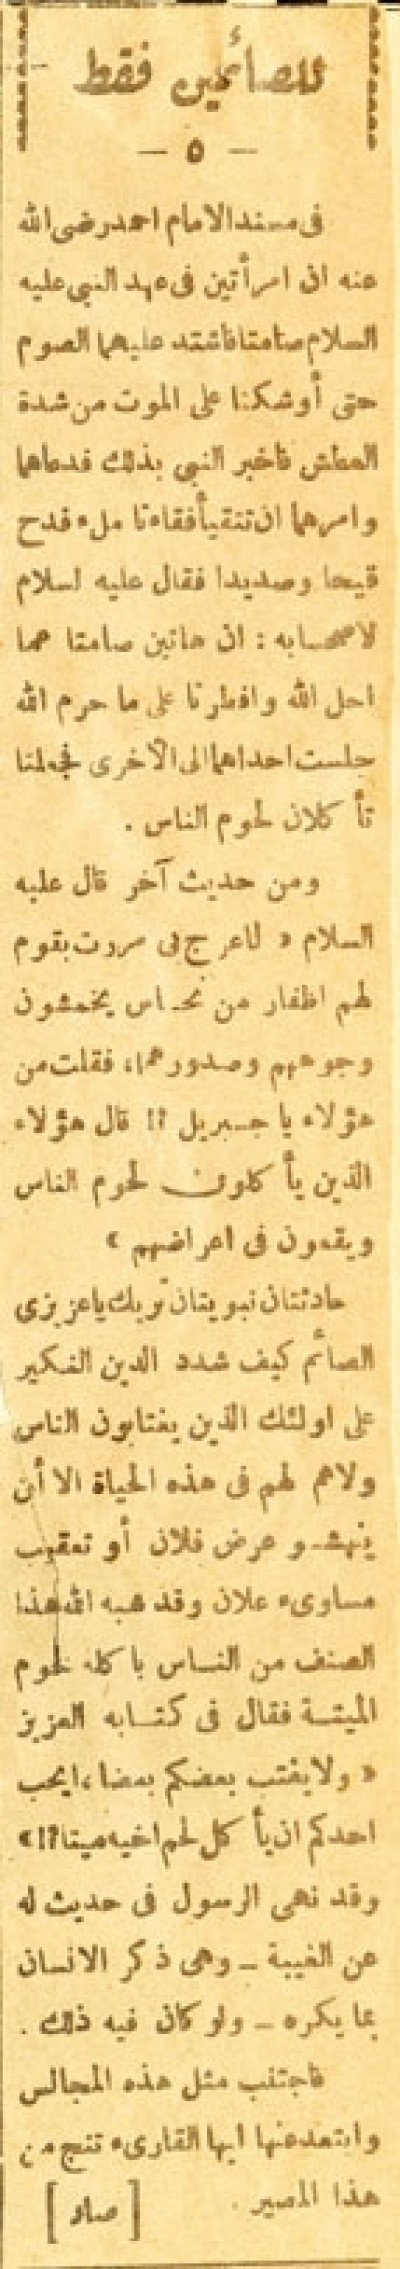 للصائمين فقط
— ٥ —
فى مسند الامام احمد رضى الله
عنه ان امرأتين فى عهد النبى عليه
السلام صامتا فاشتد عليهما الصوم
حتى أوشكتا على الموت من شدة
العطش فاخبر النبي بذلك فدعاهما
وامرهما ان تتقيأ فقاءتا ملء قدح
قيحا وصديدا فقال عليه لسلام
لاصحابه : ان هاتين صامتا عما
احل الله وافطرتا على ما حرم الله
جلست احداهما الى الآخرى فجعلتا
تأكلان لحوم الناس .
ومن حديث آخر قال عليه
السلام « لما عرج بى مررت بقوم
لهم اظفار من نحاس يخمشون
وجوههم وصدورهما، فقلت من
هؤلاء يا جبريل ?! قال هؤلاء
الذين يأكلون لحوم الناس
ويقعون فى اعراضهم »
حادثتان نبويتان تريك ياعزيزى
الصائم كيف شدد الدين النكير
على اولئك الذين يغتابون الناس
ولاهم لهم فى هذه الحياة الا أن
ينهشو عرض فلان أو تعقيب
مساوىء علان وقد شبه الله هذا
الصنف من الناس باكلة لحوم
الميتة فقال فى كتابه العزيز
« ولا يغتب بعضكم بعضا، ايحب
احدكم ان يأكل لحم اخيه ميتا?!»
وقد نهى الرسول فى حديث له
عن الغيبة ــ وهى ذكر الانسان
بما يكره ــ ولو كان فيه ذلك .
فاجتنب مثل هذه المجالس
وابتعد عنها ايها القارىء تنج من
هذا المصير .
[ صاد ]